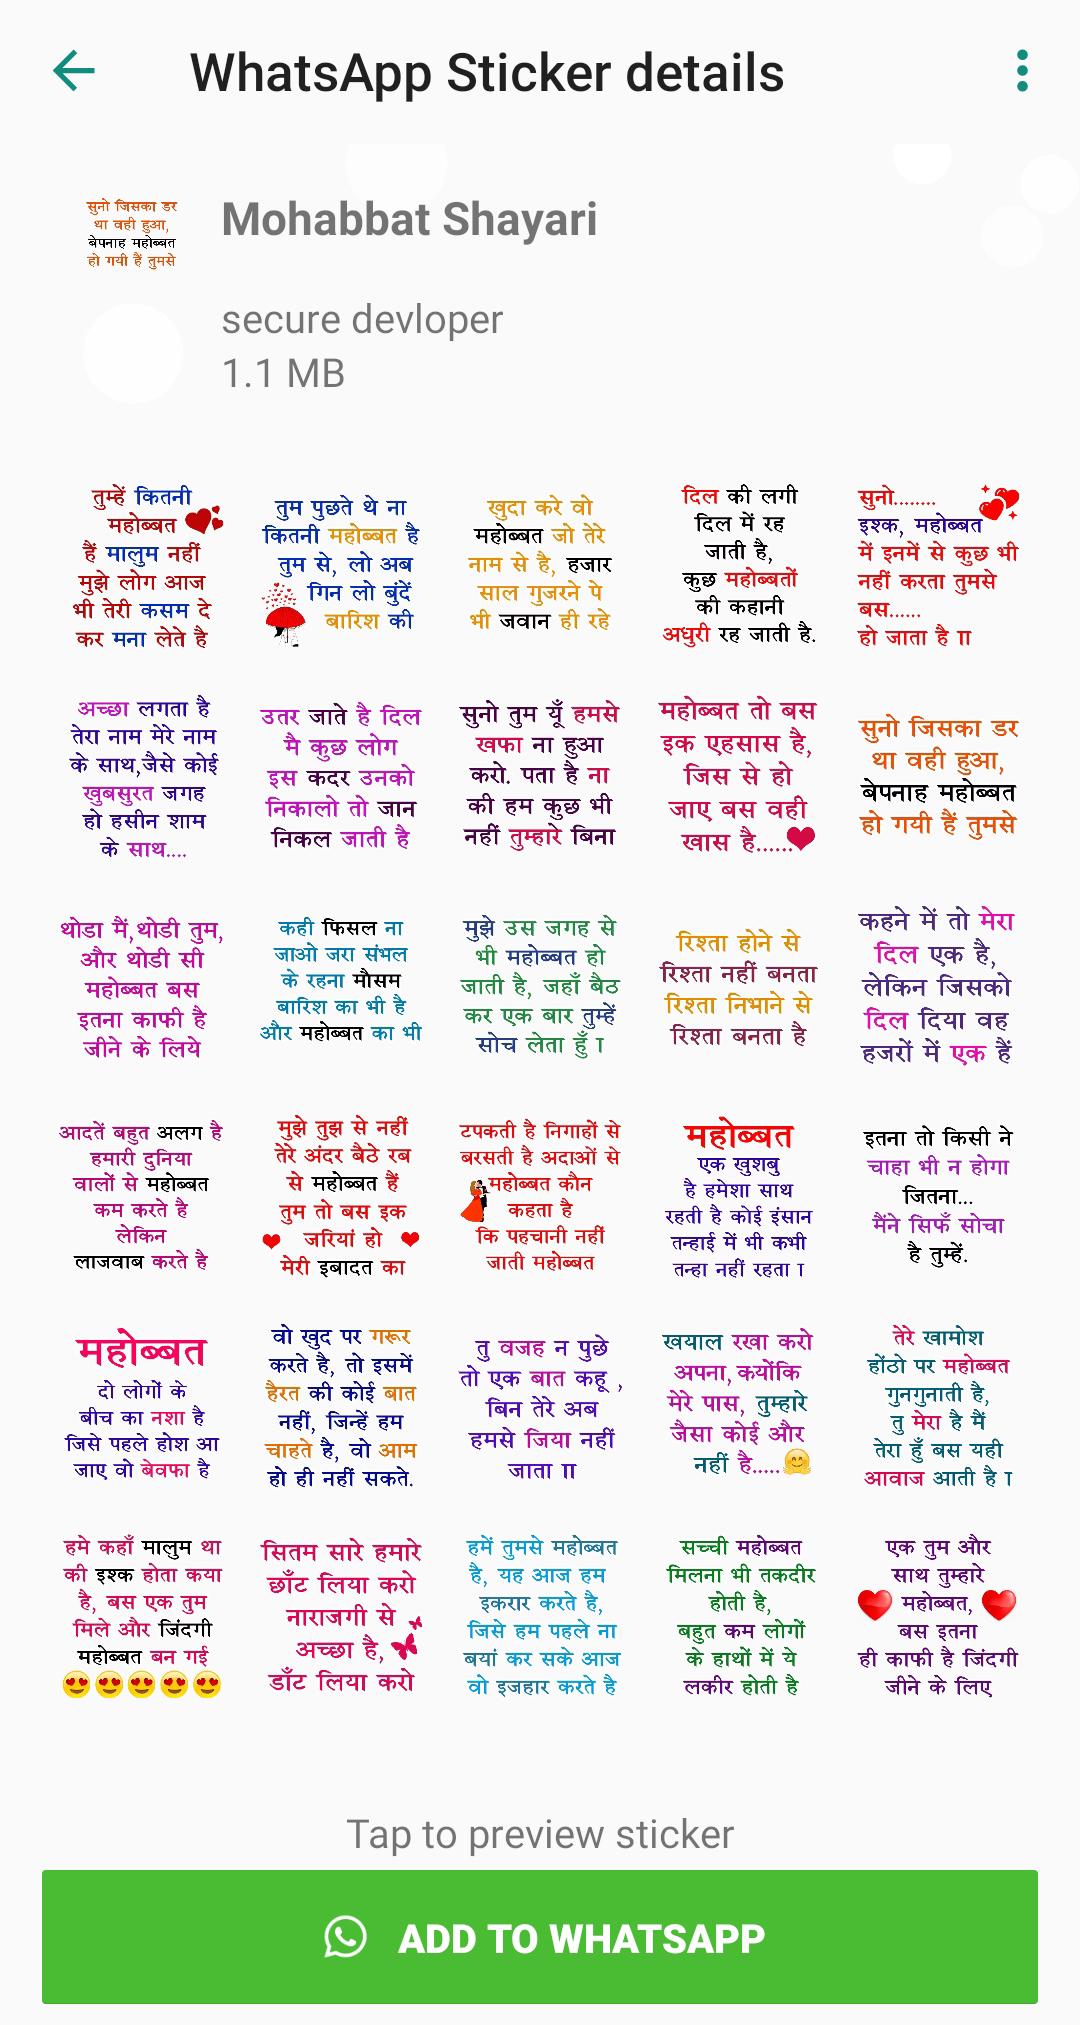 WhatsApp Sticker details
सुनो जिसका डर
था वही हुआ,
बेपनाह महोब्बत
हो गयी हैं तुमसे
Mohabbat Shayari
secure devloper
1.1 MB
तुम्हें कितनी
महोब्बत
हैं मालुम नहीं
मुझे लोग आज
भी तेरी कसम दे
कर मना लेते है
तुम पुछते थे ना
कितनी महोब्बत है
तुम से, लो अब
गिन लो बुंदें
बारिश की
खुदा करे वो
महोब्बत जो तेरे
नाम से है, हजार
साल गुजरने पे
भी जवान ही रहे
दिल की लगी
दिल में रह
जाती है,
कुछ महोब्बतों
की कहानी
अधुरी रह जाती है.
सुनो........
इश्क, महोब्बत
में इनमें से कुछ भी
नहीं करता तुमसे
बस......
हो जाता है ॥
अच्छा लगता है
तेरा नाम मेरे नाम
के साथ,जैसे कोई
खुबसुरत जगह
हो हसीन शाम
के साथ....
उतर जाते है दिल
मै कुछ लोग
इस कदर उनको
निकालो तो जान
निकल जाती है
सुनो तुम यूँ हमसे
खफा ना हुआ
करो. पता है ना
की हम कुछ भी
नहीं तुम्हारे बिना
महोब्बत तो बस
इक एहसास है,
जिस से हो
जाए बस वही
खास है......
सुनो जिसका डर
था वही हुआ,
बेपनाह महोब्बत
हो गयी हैं तुमसे
थोडा मैं,थोडी तुम,
और थोडी सी
महोब्बत बस
इतना काफी है
जीने के लिये
कही फिसल ना
जाओ जरा संभल
के रहना मौसम
बारिश का भी है
और महोब्बत का भी
मुझे उस जगह से
भी महोब्बत हो
जाती है, जहाँ बैठ
कर एक बार तुम्हें
सोच लेता हुँ ।
रिश्ता होने से
रिश्ता नहीं बनता
रिश्ता निभाने से
रिश्ता बनता है
कहने में तो मेरा
दिल एक है,
लेकिन जिसको
दिल दिया वह
हजरों में एक हैं
आदतें बहुत अलग है
हमारी दुनिया
वालों से महोब्बत
कम करते है
लेकिन
लाजवाब करते है
मुझे तुझ से नहीं
तेरे अंदर बैठे रब
से महोब्बत हैं
तुम तो बस इक
जरियां हो
मेरी इबादत का
टपकती है निगाहों से
बरसती है अदाओं से
महोब्बत कौन
कहता है
कि पहचानी नहीं
जाती महोब्बत
महोब्बत
एक खुशबु
है हमेशा साथ
रहती है कोई इंसान
तन्हाई में भी कभी
तन्हा नहीं रहता ।
इतना तो किसी ने
चाहा भी न होगा
जितना...
मैंने सिर्फ सोचा
है तुम्हें.
महोब्बत
दो लोगों के
बीच का नशा है
जिसे पहले होश आ
जाए वो बेवफा है
वो खुद पर गरूर
करते है, तो इसमें
हैरत की कोई बात
नहीं, जिन्हें हम
चाहते है, वो आम
हो ही नहीं सकते.
तु वजह न पुछे
तो एक बात कहू ,
बिन तेरे अब
हमसे जिया नहीं
जाता ॥
खयाल रखा करो
अपना, कयोंकि
मेरे पास, तुम्हारे
जैसा कोई और
नहीं है.....
तेरे खामोश
होंठो पर महोब्बत
गुनगुनाती है,
तु मेरा है मैं
तेरा हुँ बस यही
आवाज आती है ।
हमे कहाँ मालुम था
की इश्क होता कया
है, बस एक तुम
मिले और जिंदगी
महोब्बत बन गई
सितम सारे हमारे
छाँट लिया करो
नाराजगी से
अच्छा है,
डाँट लिया करो
हमें तुमसे महोब्बत
है, यह आज हम
इकरार करते है,
जिसे हम पहले ना
बयां कर सके आज
वो इजहार करते है
सच्ची महोब्बत
मिलना भी तकदीर
होती है,
बहुत कम लोगों
के हाथों में ये
लकीर होती है
एक तुम और
साथ तुम्हारे
महोब्बत,
बस इतना
ही काफी है जिंदगी
जीने के लिए
Tap to preview sticker
ADD TO WHATSAPP